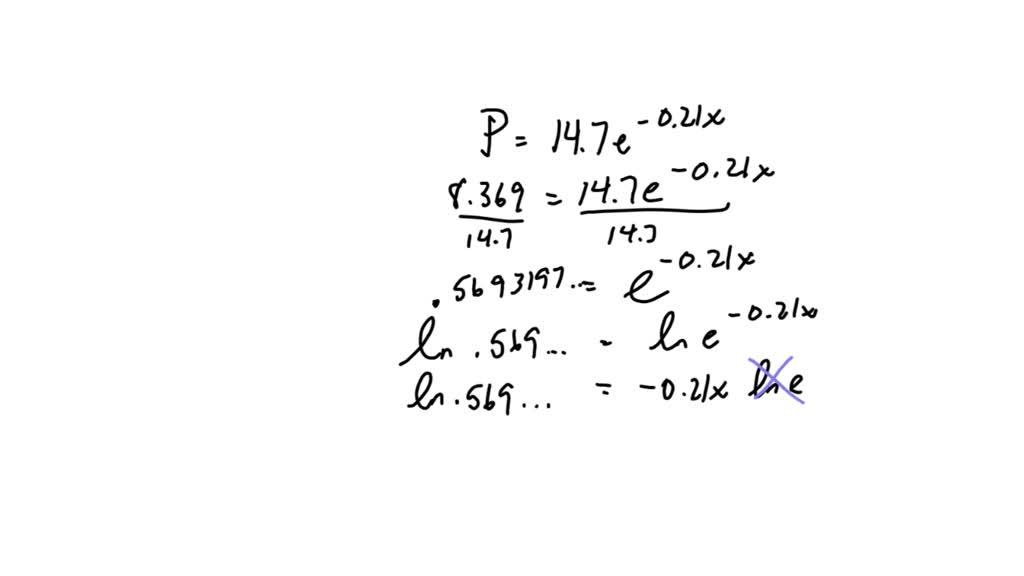 P = 14.7e^{-0.21x}
8.369/14.7 = 14.7e^{-0.21x}/14.7
.5693197... = e^{-0.21x}
ln .569... = ln e^{-0.21x}
ln .569... = -0.21x ln e